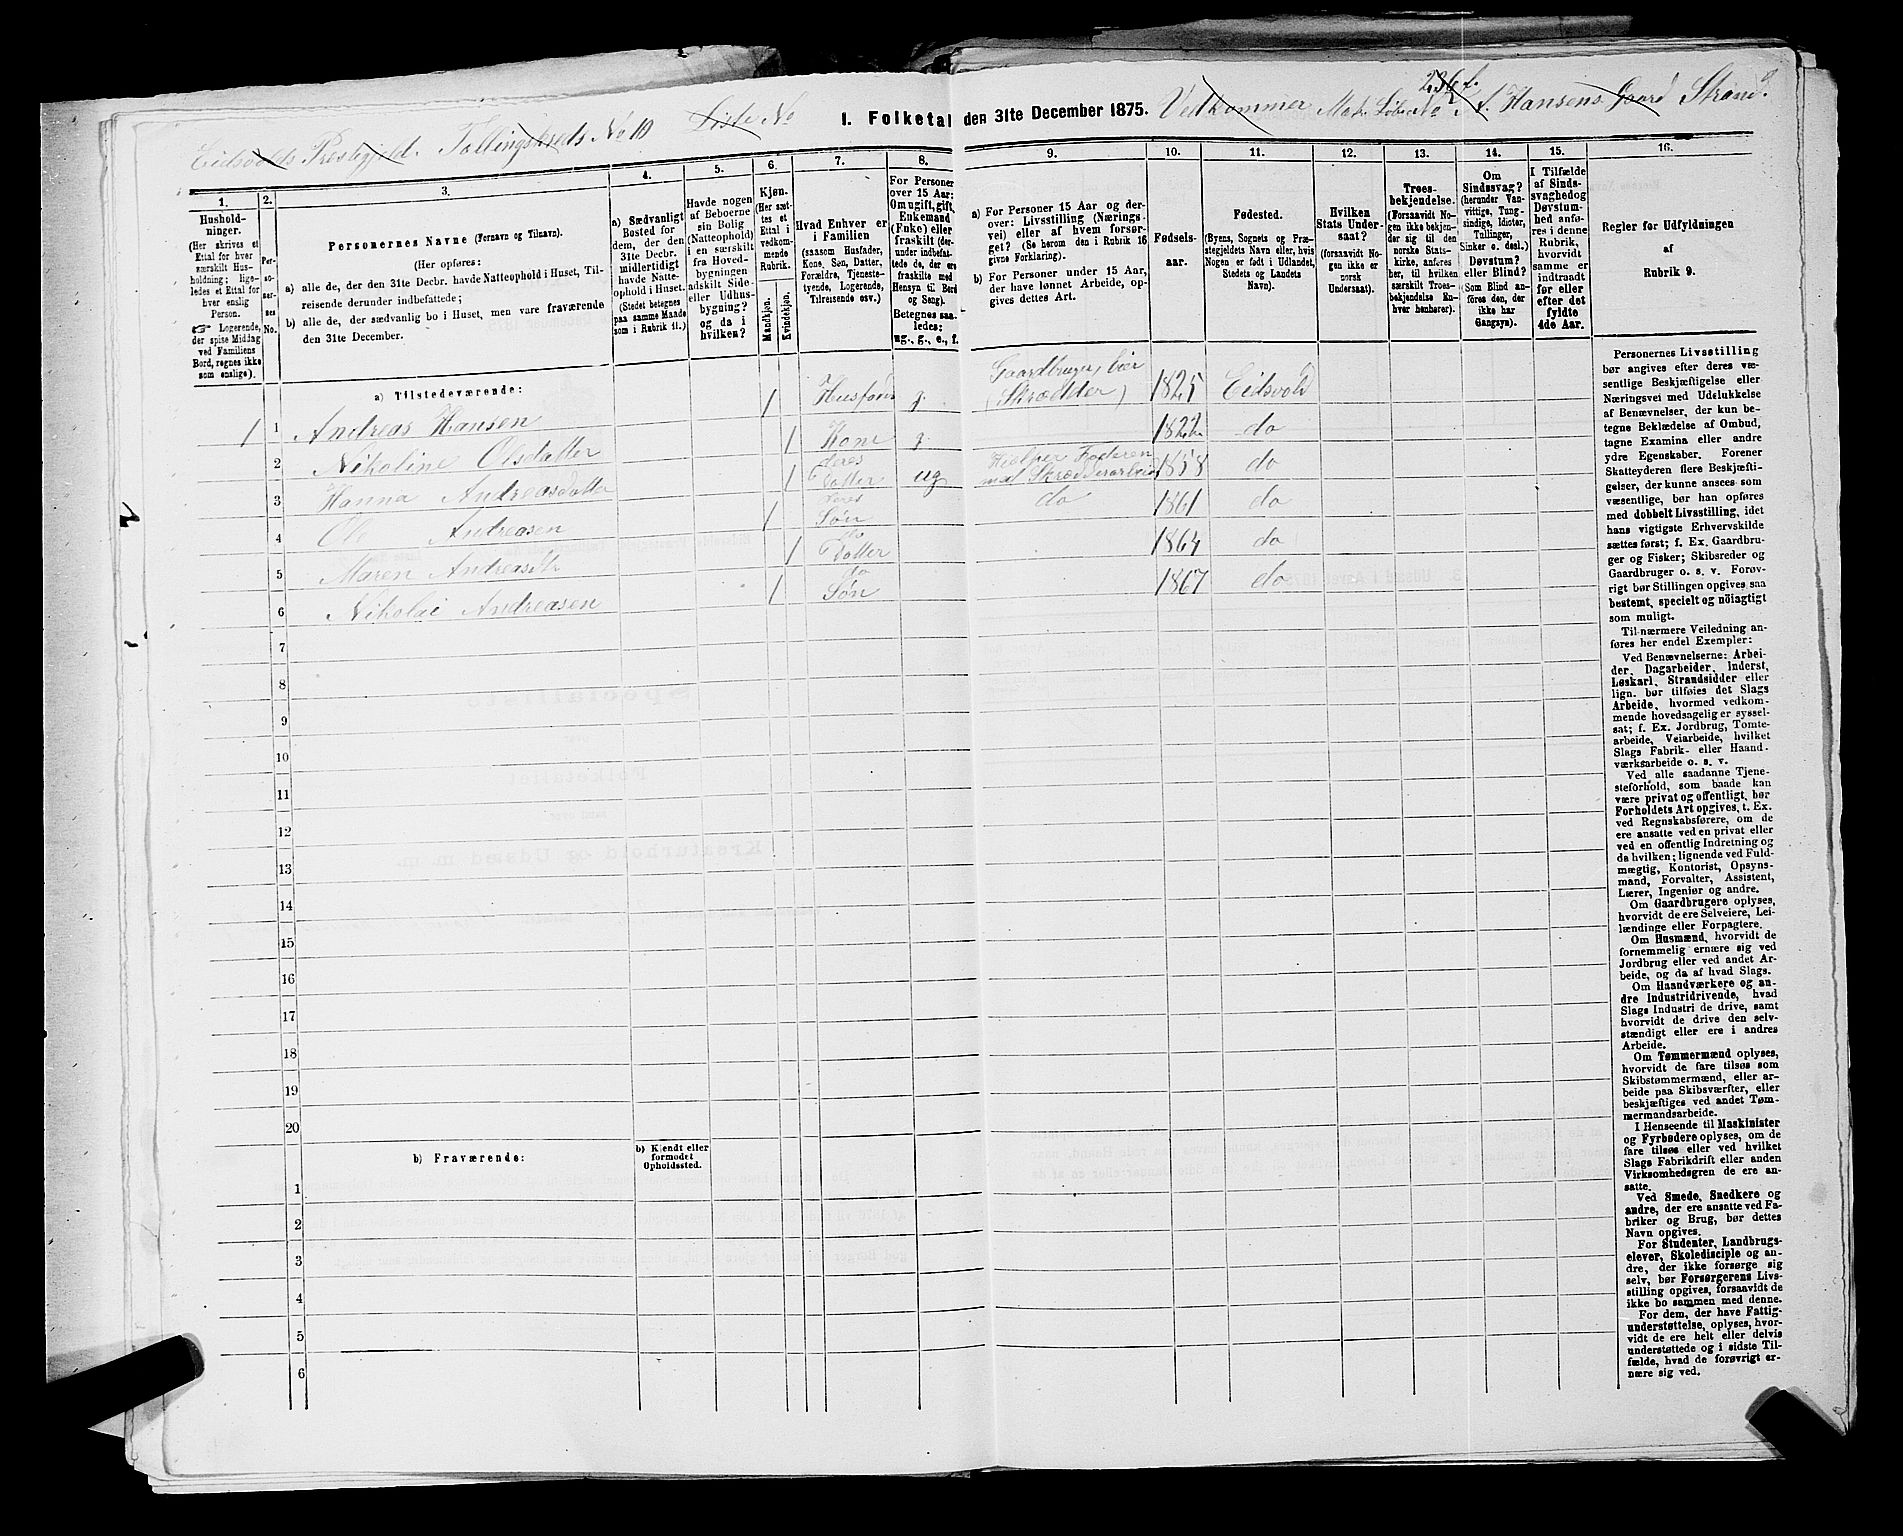 Eidsvolds Prestegjeld. Tællingskreds No 10 Liste No
I. Folketal den 31te December 1875.
Vedkommer Matr. Løbe No A. Hansens Gaard Strand.
236 f.
1. 2. 3. 4. 5. 6. 7. 8. 9. 10. 11. 12. 13. 14. 15. 16.
Hushold-
ninger.
(Her skrives et
Ettal for hver
særskilt Hus-
holdning; lige-
ledes et Ettal for
hver enslig
Person.
☞ Logerende,
der spise Middag
ved Familiens
Bord, regnes ikke
som enslige).
Per-
so-
ner-
nes
No.
Personernes Navne (Fornavn og Tilnavn).
(Her opføres:
a) alle de, der den 31te Decbr. havde Natteophold i Huset, Til-
reisende derunder indbefattede;
b) alle de, der sædvanlig bo i Huset, men vare fraværende
den 31te December.
a) Sædvanligt
Bosted for
dem, der den
31te Decbr.
midlertidigt
havde Natte-
ophold i Huset.
(Stedet betegnes
paa samme Maade
som i Rubrik 11.)
Havde nogen
af Beboerne
sin Bolig
(Natteophold)
i en særskilt
fra Hoved-
bygningen
adskilt Side-
eller Udhus-
bygning?
og da i
hvilken?
Kjøn.
(Her sæt-
tes et
Ettal i
vedkom-
mende
Rubrik.
Mandkjøn.
Kvindekjøn.
Hvad Enhver er
i Familien
(saasom Husfader,
Kone, Søn, Datter,
Forældre, Tjeneste-
tyende, Logerende,
Tilreisende osv.)
For Personer
over 15 Aar:
Om ugift, gift,
Enkemand
(Enke) eller
fraskilt (der-
under indbefat-
tede de, der ere
fraskilte med
Hensyn til Bord
og Seng).
Betegnes saa-
ledes:
ug., g., e., f.
a) For Personer 15 Aar og der-
over: Livsstilling (Nærings-
vei) eller af hvem forsør-
get? (Se herom den i Rubrik 16
givne Forklaring).
b) For Personer under 15 Aar,
der have lønnet Arbeide, op-
gives dettes Art.
Fødsels-
aar.
Fødested.
(Byens, Sognets og Præ-
stegjeldets Navn eller, hvis
Nogen er født i Udlandet,
Stedets og Landets
Navn).
Hvilken
Stats Under-
saat?
(forsaavidt No-
gen ikke er
norsk
Undersaat).
Troes-
bekjendelse.
(Forsaavidt No-
gen ikke bekjen-
der sig til den
norske Stats-
kirke, anføres
her, til hvilken
særskilt Troes-
bekjendelse En-
hver henhører).
Om
Sindssvag?
(herunder Van-
vittige, Tung-
sindige, Idioter,
Tullinger,
Sinker o. desl.)
Døvstum?
eller Blind?
(Som Blind an-
føres den, der
ikke har
Gangsyn).
I Tilfælde
af Sinds-
svaghed og
Døvstum-
hed anfø-
res i denne
Rubrik,
hvorvidt
samme er
indtraadt
før eller
efter det
fyldte
4de Aar.
Regler for Udfyldningen
af
Rubrik 9.
a) Tilstedeværende:
1 1 Andreas Hansen 1 Husfader g. Gaardbruger, Eier (Skrædder) 1825 Eidsvold
2 Nikoline Olsdatter 1 Kone g. 1822 do
3 Hanna Andreasdatter 1 deres Datter ug Hjælper Faderen med Skrædderarbeide 1858 do
4 Ole Andreasen 1 deres Søn do 1861 do
5 Maren Andreasdt. 1 do Datter 1864 do
6 Nikolai Andreasen 1 do Søn 1867 do
7
8
9
10
11
12
13
14
15
16
17
18
19
20
b) Fraværende:
b) Kjendt eller
formodet
Opholdssted.
1
2
3
4
5
6
Personernes Livsstilling
bør angives efter deres væ-
sentlige Beskjæftigelse eller
Næringsvei med Udelukkelse
af Benævnelser, der kun be-
tegne Beklædelse af Ombud,
tagne Examina eller andre
ydre Egenskaber. Forener
Skatteyderen flere Beskjæfti-
gelser, der kunne ansees som
væsentlige, bør han opføres
med dobbelt Livsstilling, idet
hans vigtigste Erhvervskilde
sættes først; f. Ex. Gaardbru-
ger og Fisker; Skibsreder og
Gaardbruger o. s. v. Forøv-
rigt bør Stillingen opgives saa
bestemt, specielt og nöiagtigt
som muligt.
Til nærmere Veiledning an-
føres her endel Exempler:
Ved Benævnelserne: Arbei-
der, Dagarbeider, Inderst,
Løskarl, Strandsidder eller
lign. bør tilføies det Slags
Arbeide, hvormed vedkom-
mende hovedsagelig er syssel-
sat; f. Ex. Jordbrug, Tomte-
arbeide, Veiarbeide, hvilket
Slags Fabrik- eller Haand-
værksarbeide o. s. v.
Ved alle saadanne Tjene-
steforhold, som baade kan
være privat og offentligt, bør
Forholdets Art opgives, t. Ex.
ved Regnskabsførere, om de
ere ansatte ved en privat eller
ved en offentlig Indretning og
da hvilken; lignende ved Fuld-
mægtig, Kontorist, Opsyns-
mand, Forvalter, Assistent,
Lærer, Ingeniør og andre.
Om Gaardbrugere oplyses,
hvorvidt de ere Selveiere, Lei-
lændinge eller Forpagtere.
Om Husmænd, hvorvidt de
fornemmelig ernære sig ved
Jordbrug eller ved andet Ar-
beide, og da af hvad Slags.
Om Haandværkere og an-
dre Industridrivende, hvad
Slags Industri de drive, samt
hvorvidt de drive den selv-
stændigt eller ere i andres
Arbeide.
Om Tømmermænd oplyses,
hvorvidt de fare tilsøs som
Skibstømmermænd, eller ar-
beide paa Skibsværfter, eller
beskjæftiges ved andet Tøm-
mermandsarbeide.
I Henseende til Maskinister
og Fyrbødere oplyses, om de
fare tilsøs eller ved hvilket
Slags Fabrikdrift eller anden
Virksomhedsgren de ere an-
satte.
Ved Smede, Snedkere og
andre, der ere ansatte ved Fa-
briker og Brug, bør dettes
Navn opgives.
For Studenter, Landbrugs-
elever, Skoledisciple og an-
dre, der ikke forsørge sig
selv, bør Forsørgerens Livs-
stilling opgives, forsaavidt de
ikke bo sammen med denne.
For dem, der have Fattig-
understøttelse, oplyses, hvor-
vidt de ere helt eller delvis
understøttede og i sidste Til-
fælde, hvad de forøvrigt er-
nære sig ved.